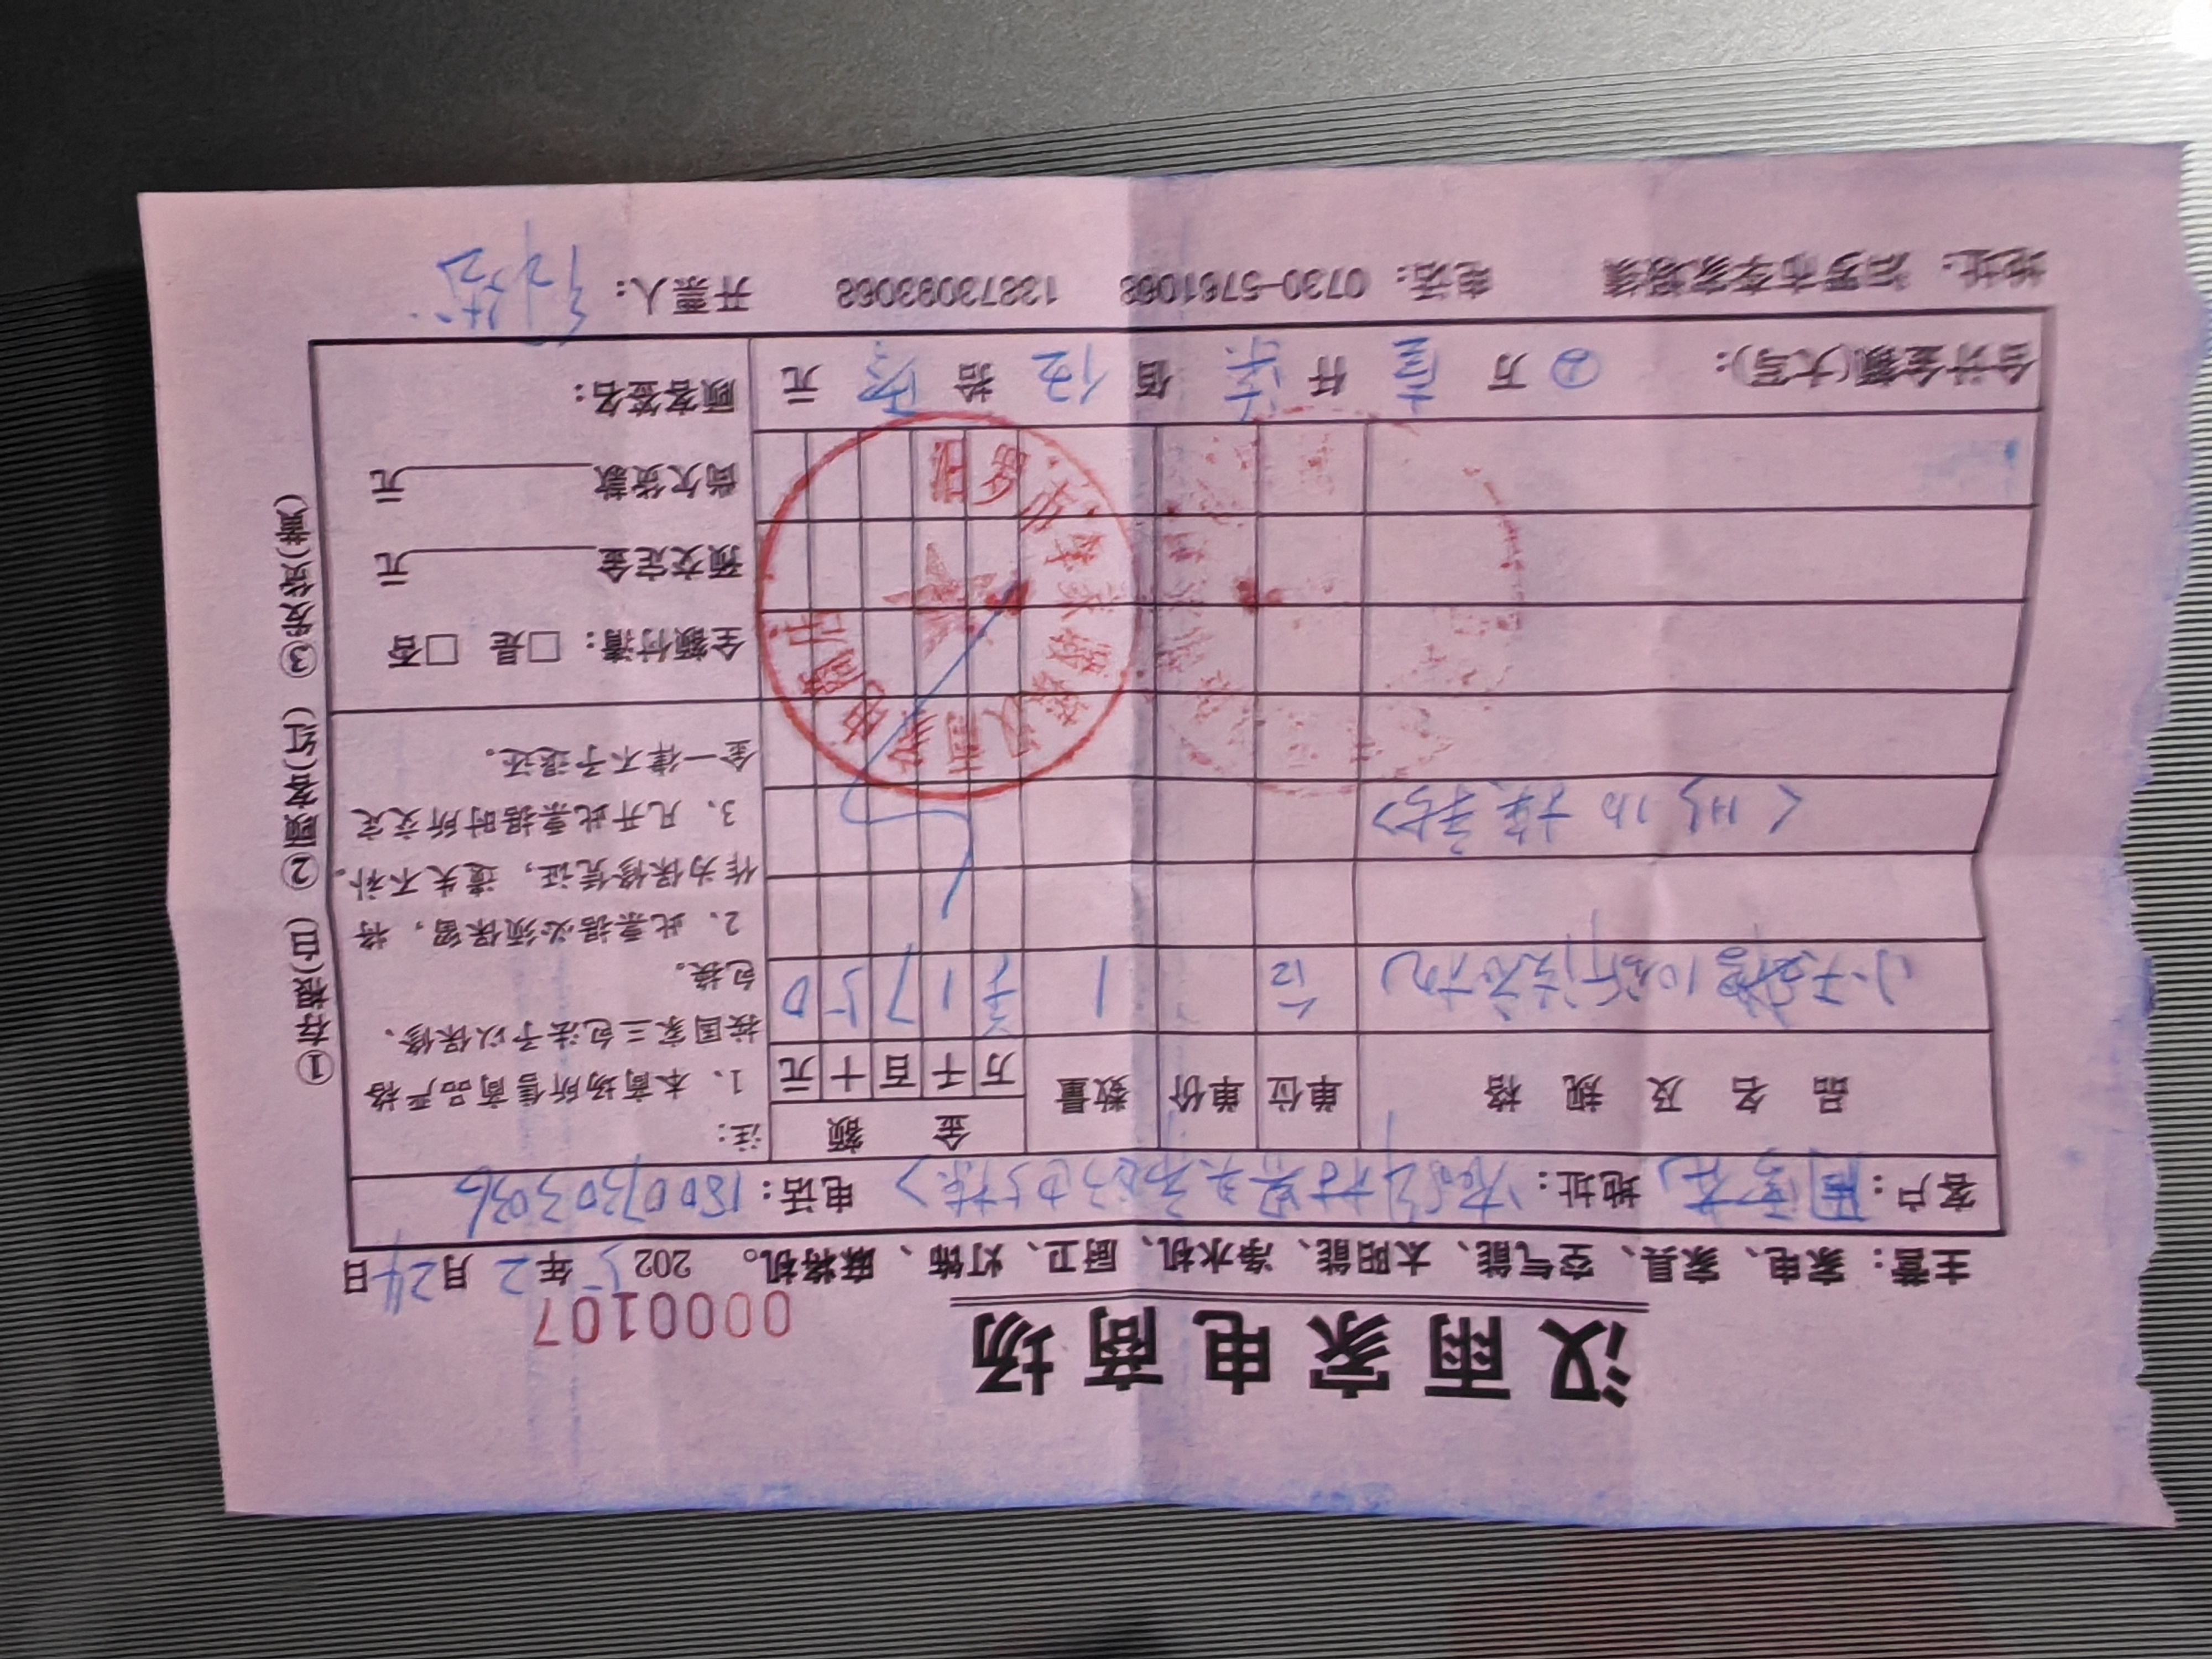 汉雨家电商场
0000107
主营：家电、家具、空气能、太阳能、净水机、厨卫、灯饰、麻将机。 2025年2月24日
客户： 地址： 电话：18007303036
品名及规格 单位 单价 数量 金额 注：
万 千 百 十 元
小天鹅10公斤洗衣机 台 1 1750
1、本商场所售商品严格
按国家三包法予以保修、
包换。
2、此票据必须保留，将
作为保修凭证，遗失不补。
3、凡开此票据时所交定
金一律不予退还。
全额付清：□是 □否
预交定金 元
尚欠货款 元
顾客签名：
合计金额(大写)： 万 壹 仟 柒 佰 伍 拾 零 元
地址：汨罗市李家塅镇 电话：0730-5761068 13873093068 开票人：
①存根(白) ②顾客(红) ③发货(黄)
汨罗市李家塅镇汉雨家电商店